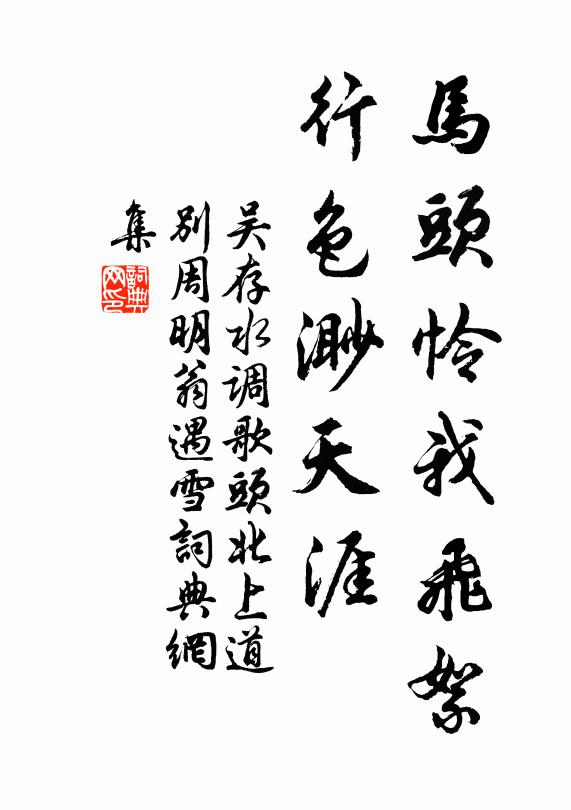 馬頭怜我飛絮
行色渺天涯
吴存水调歌頭北上道
别周明翁遇雪詞典網
集
詞典
网印